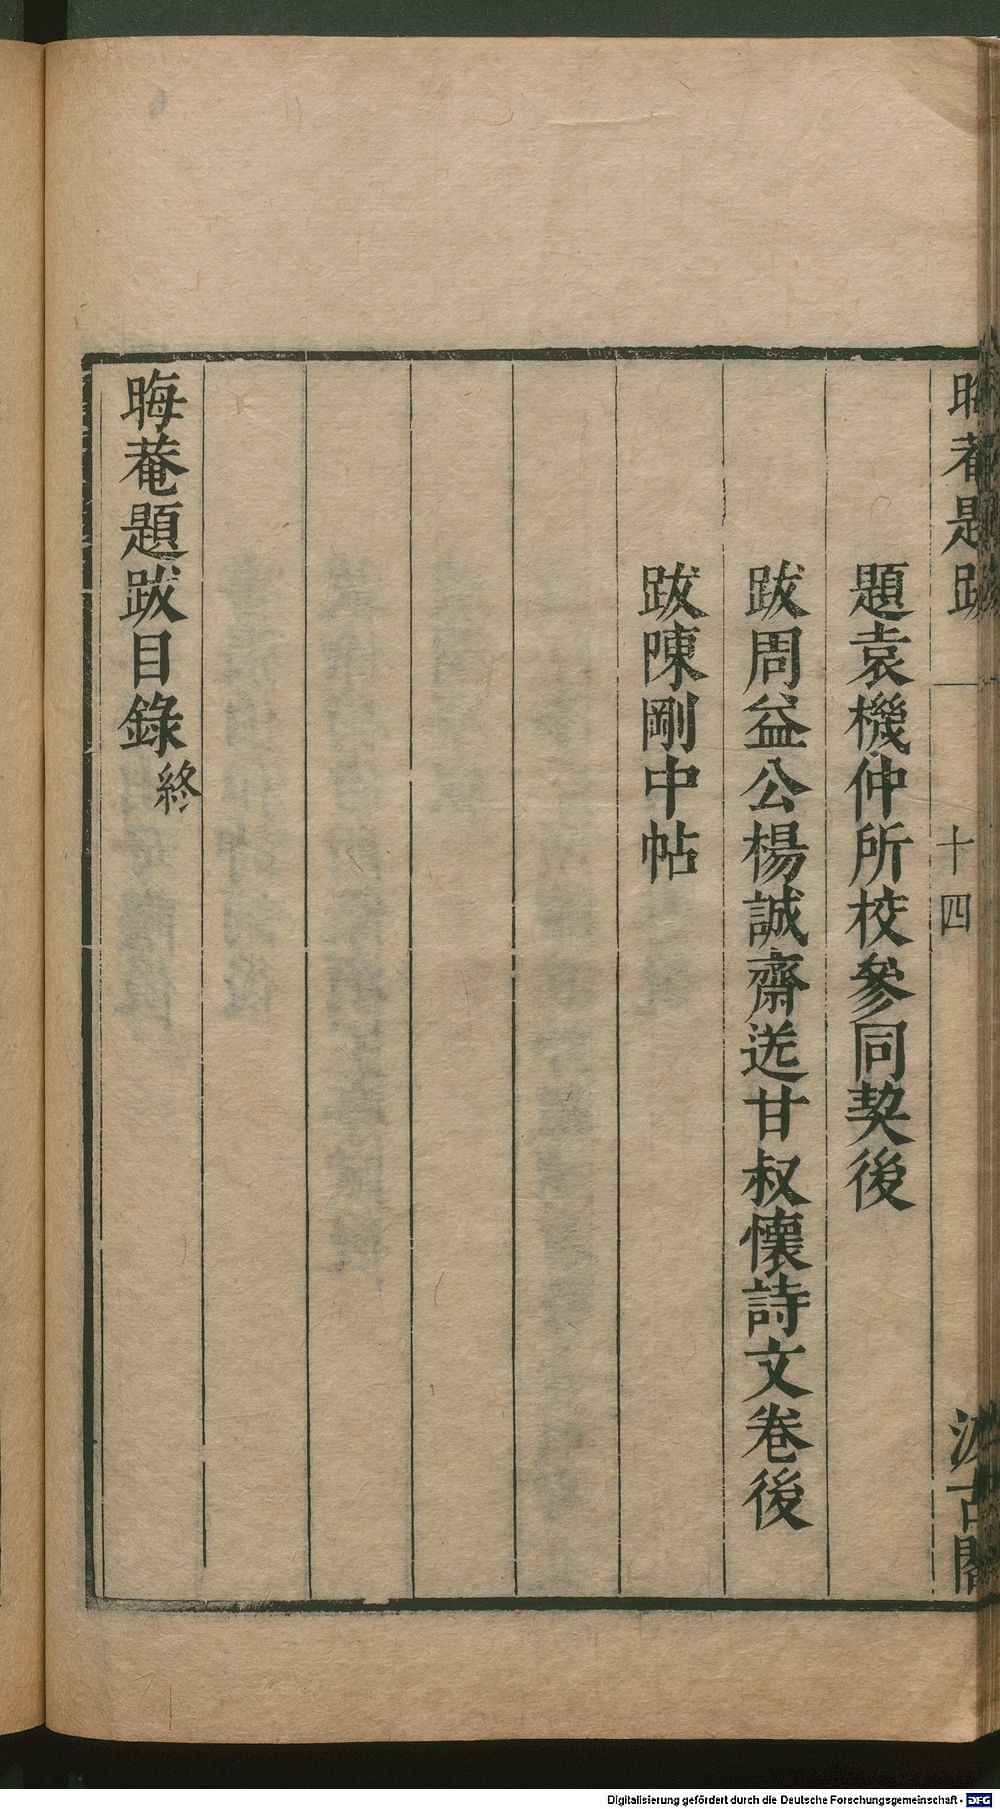 晦菴題跋 十四 汲古閣
題袁機仲所校參同契後
跋周益公楊誠齋送甘叔懷詩文卷後
跋陳剛中帖
晦菴題跋目錄終
Digitalisierung gefördert durch die Deutsche Forschungsgemeinschaft - DFG